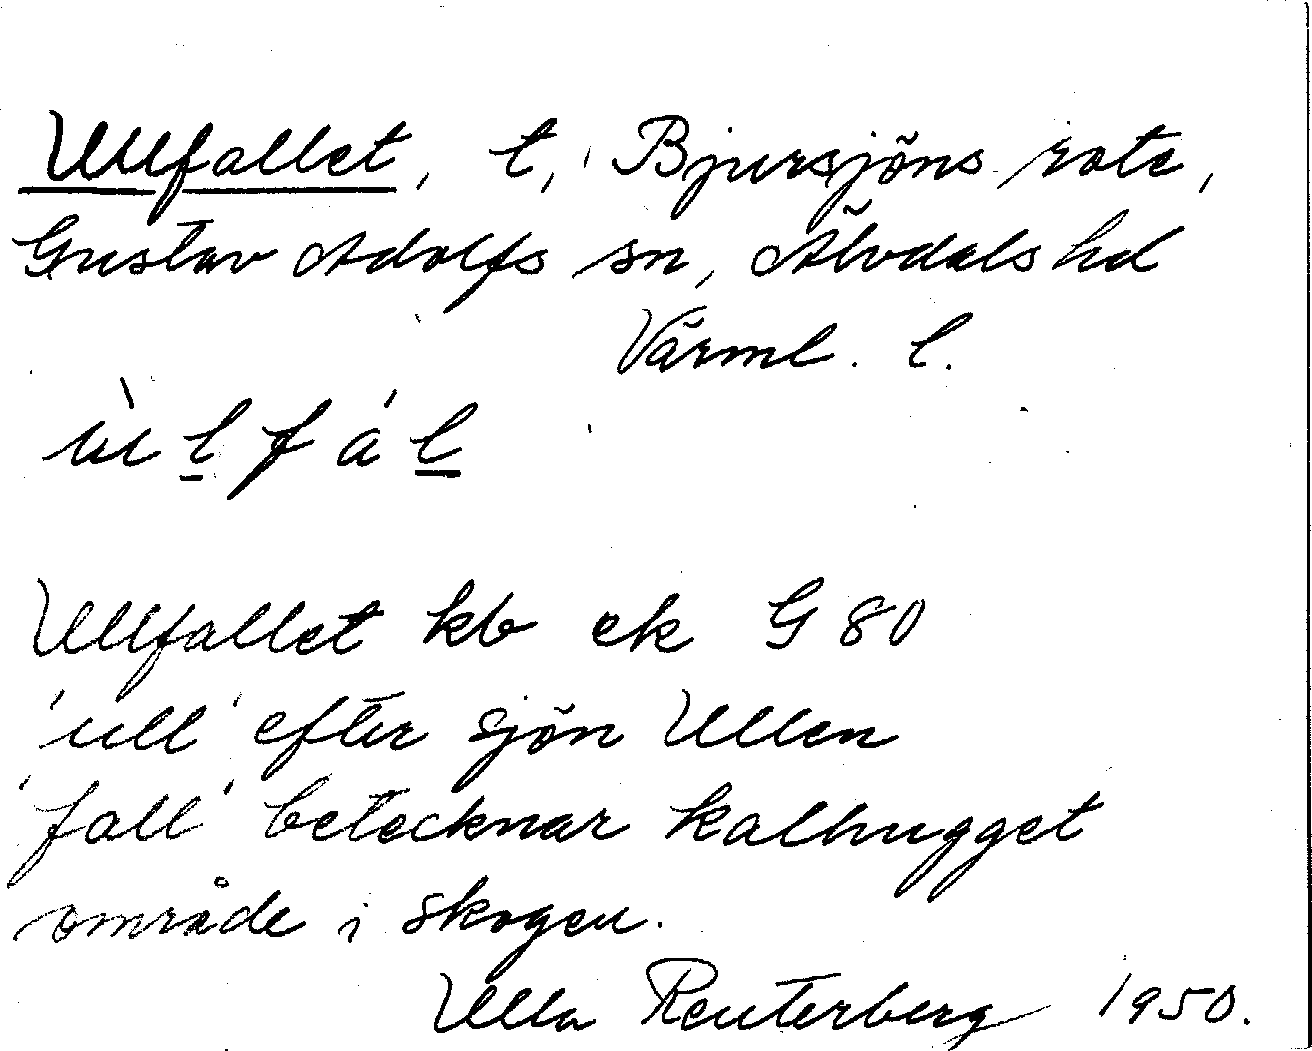 Ullfallet, t, Bjursjöns rote,
Gustav Adolfs sn, Älvdals hd
Värml. l.
ùlfál
Ullfallet kb ek G 80
'ull' efter sjön Ullen
'fall' betecknar kalhugget
område i skogen.
Ulla Reuterberg 1950.